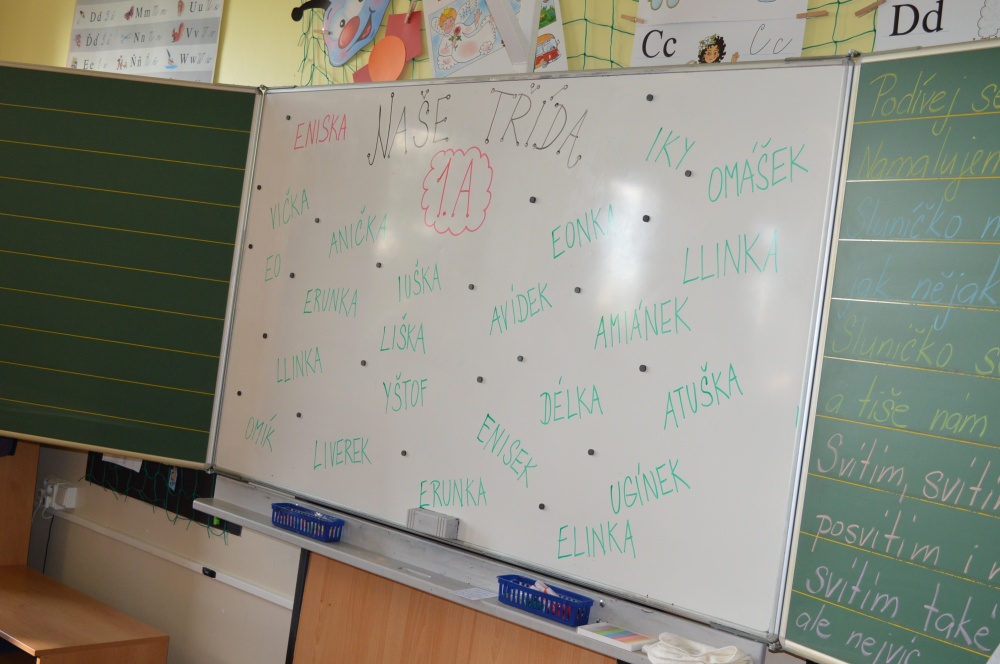 Dd
Mm
Uu
Ďď
Nn
Vv
Ee
Ňň
Ww
Cc
Cc
Dd
NAŠE TŘÍDA
1.A
ENISKA
IKY
OMÁŠEK
VIČKA
ANIČKA
EONKA
EO
IUŠKA
LLINKA
ERUNKA
AVÍDEK
AMIÁNEK
LIŠKA
LLINKA
YŠTOF
DÉLKA
ATUŠKA
OMÍK
LIVEREK
ENISEK
ERUNKA
UGÍNEK
ELINKA
Podívej se
Namalujem
Sluníčko
jak nějak
Sluníčko
a tiše nám
Svítím, svítím
posvítím i
svítím také
ale nejvíc